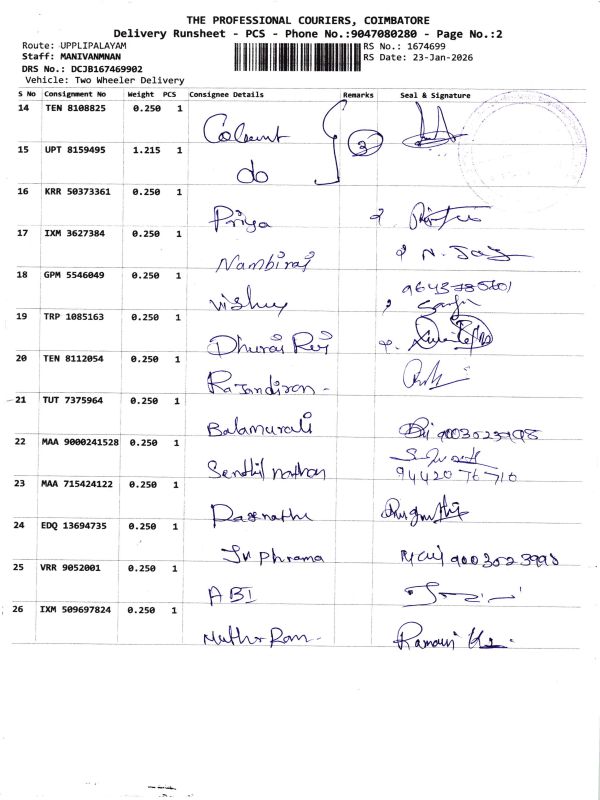 THE PROFESSIONAL COURIERS, COIMBATORE
Delivery Runsheet - PCS - Phone No.:9047080280 - Page No.:2
Route: UPPLIPALAYAM RS No.: 1674699
Staff: MANIVANMNAN RS Date: 23-Jan-2026
DRS No.: DCJB167469902
Vehicle: Two Wheeler Delivery
S No Consignment No Weight PCS Consignee Details Remarks Seal & Signature
14 TEN 8108825 0.250 1 3
15 UPT 8159495 1.215 1 do
16 KRR 50373361 0.250 1 Priya
17 IXM 3627384 0.250 1 Nambiraj N. Jay
18 GPM 5546049 0.250 1 Vishuy
19 TRP 1085163 0.250 1 Dhuraj Raj
20 TEN 8112054 0.250 1 Rajandiran -
21 TUT 7375964 0.250 1 Balamurali
22 MAA 9000241528 0.250 1 Senthil nathan 94420 76710
23 MAA 715424122 0.250 1
24 EDQ 13694735 0.250 1 9003023998
25 VRR 9052001 0.250 1 ABI
26 IXM 509697824 0.250 1 Muthu Ram -